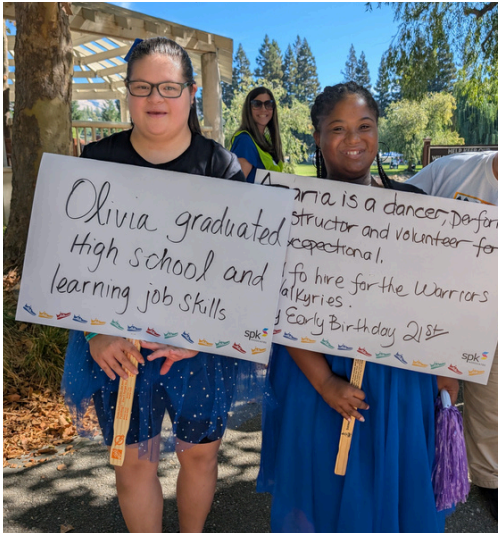 Olivia graduated
High school and
learning job skills
spk
is a dancer, Perfor
structor and volunteer for
fo hire for the Warriors
alkyries.
Early Birthday 21st
spk